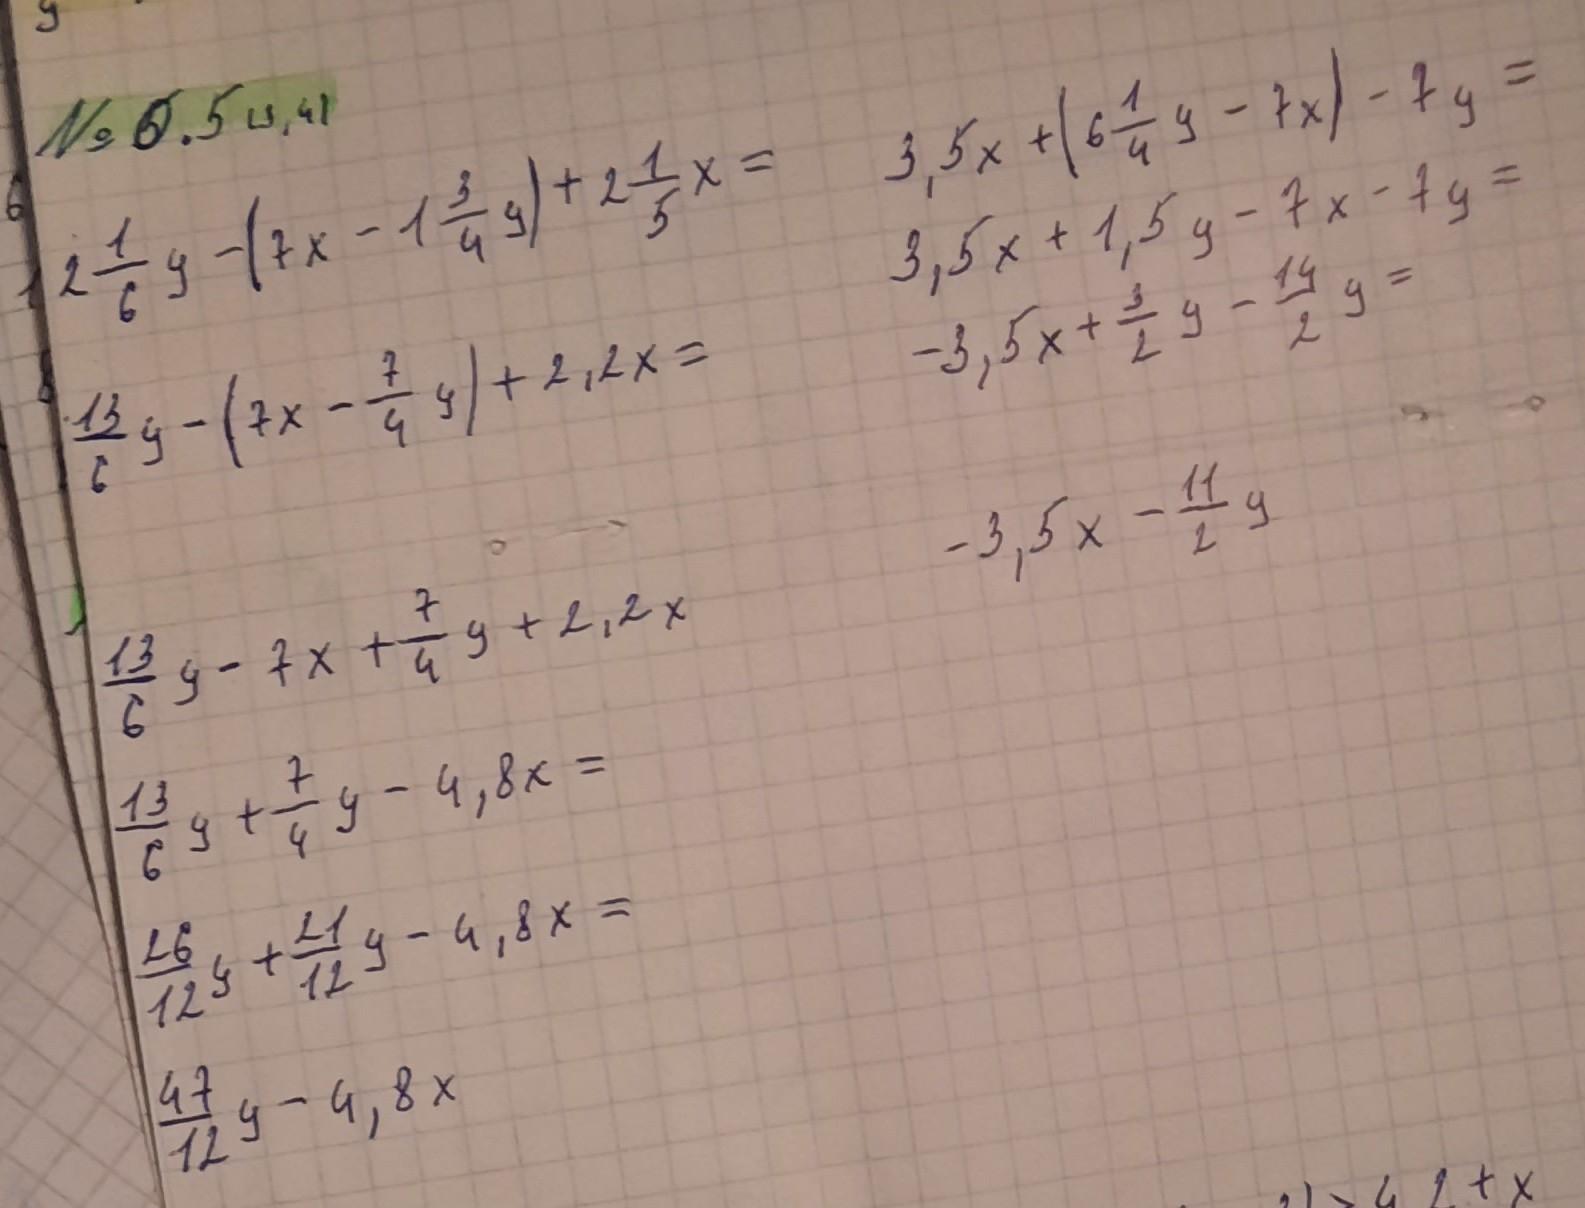 у
№ 6.5
2 1/6 y - (7x - 1 3/4 y) + 2 1/5 x =
13/6 y - (7x - 7/4 y) + 2,2x =
13/6 y - 7x + 7/4 y + 2,2x
13/6 y + 7/4 y - 4,8x =
26/12 y + 21/12 y - 4,8x =
47/12 y - 4,8x
3,5x + (6 1/4 y - 7x) - 7y =
3,5x + 1,5y - 7x - 7y =
-3,5x + 3/2 y - 14/2 y =
-3,5x - 11/2 y
2 + x